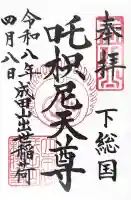 奉拝
下総国
吒枳尼天尊
成田山出世稲荷
令和八年
四月八日